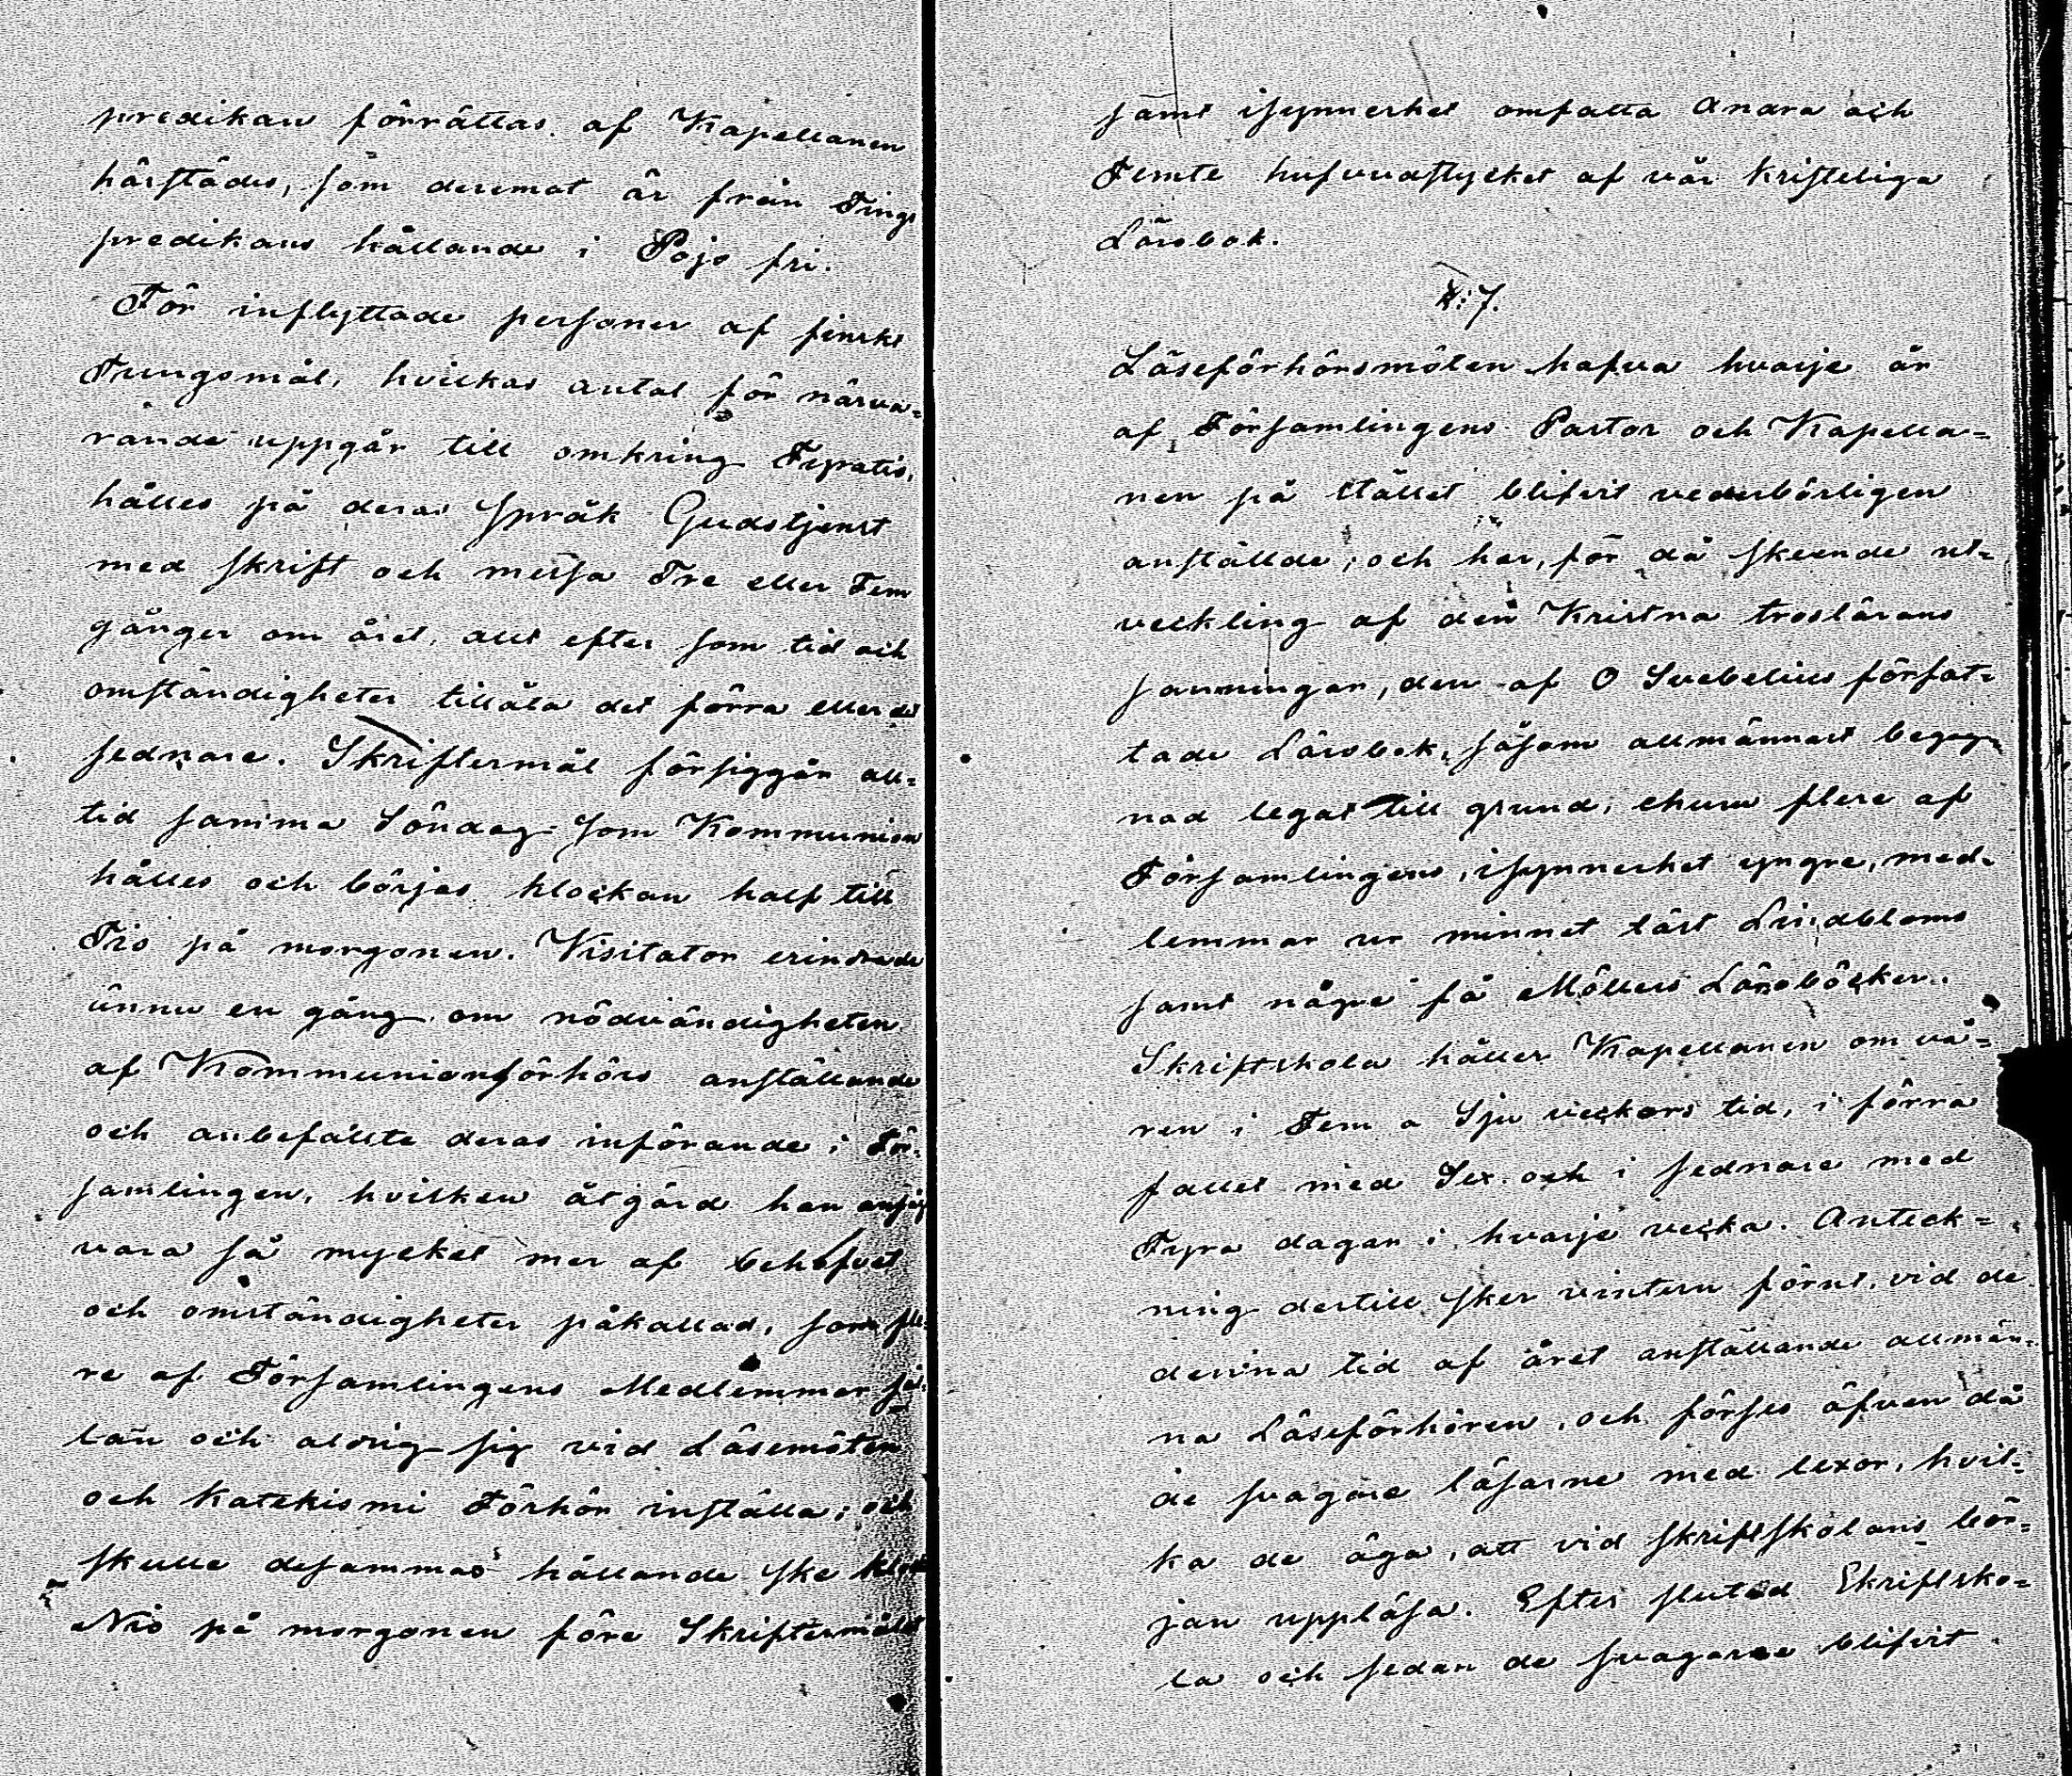 predikan förrättas af Kapellanen
härstädes, som deremot är från Tings
predikans hållande i Pojo fri.
För inflyttade personer af finskt
Tungomål, hvilkas antal för närva=
rande uppgår till omkring Fyratio,
hålles på deras Språk Gudstjenst
med skrift och messa Tre eller Fem
gånger om året, allt efter som tid och
omständigheter tillåta det förra eller det
sednare. Skriftermål försiggår all=
tid samma Söndag som Kommunion
hålles och börjas klockan half till
Tio på morgonen. Visitator erindrade
ännu en gång om nödvändigheten
af Kommunionförhörs anställande
och anbefallte deras införande i För=
samlingen, hvilken åtgärd han ansåg
vara så mycket mer af behofvet
och omständigheter påkallad, som fle=
re af Församlingens Medlemmar säl=
lan och aldrig sig vid Läsemöten
och Katekismi Förhör inställa; och
skulle desammas hållande ske klock
Nio på morgonen före Skriftermålet
samt isynnerhet omfatta Andra och
Femte hufvudstycket af vår kristeliga
Lärobok.
§: 7.
Läseförhörsmöten hafva hvarje år
af Församlingens Pastor och Kapella=
nen på stället blifvit vederbörligen
anställde, och har, för då skeende ut=
veckling af den Kristna troslärans
sanningar, den af O Svebelius förfat=
tade Lärobok, såsom allmännast begag=
nad legat till grund, ehuru flere af
Församlingens, isynnerhet yngre, med=
lemmar ur minnet läst Lindbloms
samt några få Möllers Läroböcker.
Skriftskola håller Kapellanen om vå=
ren i Fem a Sju veckors tid, i förra
fallet med Sex och i sednare med
Fyra dagar i hvarje vecka. Anteck=
ning dertill sker vintern förut, vid de
denna tid af året anställande allmän=
na Läseförhören, och förses äfven då
de svagare läsarne med lexor, hvil=
ka de äga, att vid skriftskolans bör=
jan uppläsa. Efter slutad Skriftsko=
la och sedan de svagaree blifvit